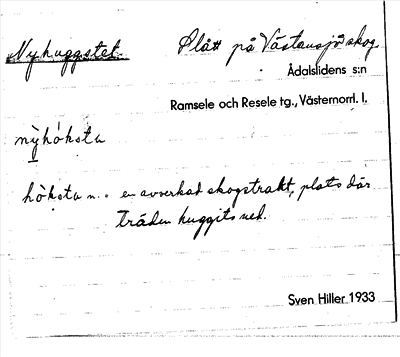 Nyhuggstet. Slått på Västansjö skog.
Ådalslidens s:n
Ramsele och Resele tg., Västernorrl. l.
nỳhòksta
hòksta n. = en avverkad skogstrakt, plats där
träden huggits ned.
Sven Hiller 1933